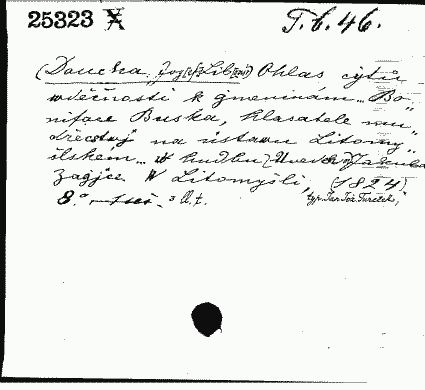 25323 X T.b.46.
(Doucha, Jos[ef] Lib[oslav]) Ohlas cytů
wděčnosti k gmeninám .. Bo-
niface Buska, klasatele mu-
dřectwj na ústawu Litomy-
šlském .. W hudbu
Zagjce. W Litomyšli, (1824)
8.° 2 l.
typ. Jan Jos. Tureček,